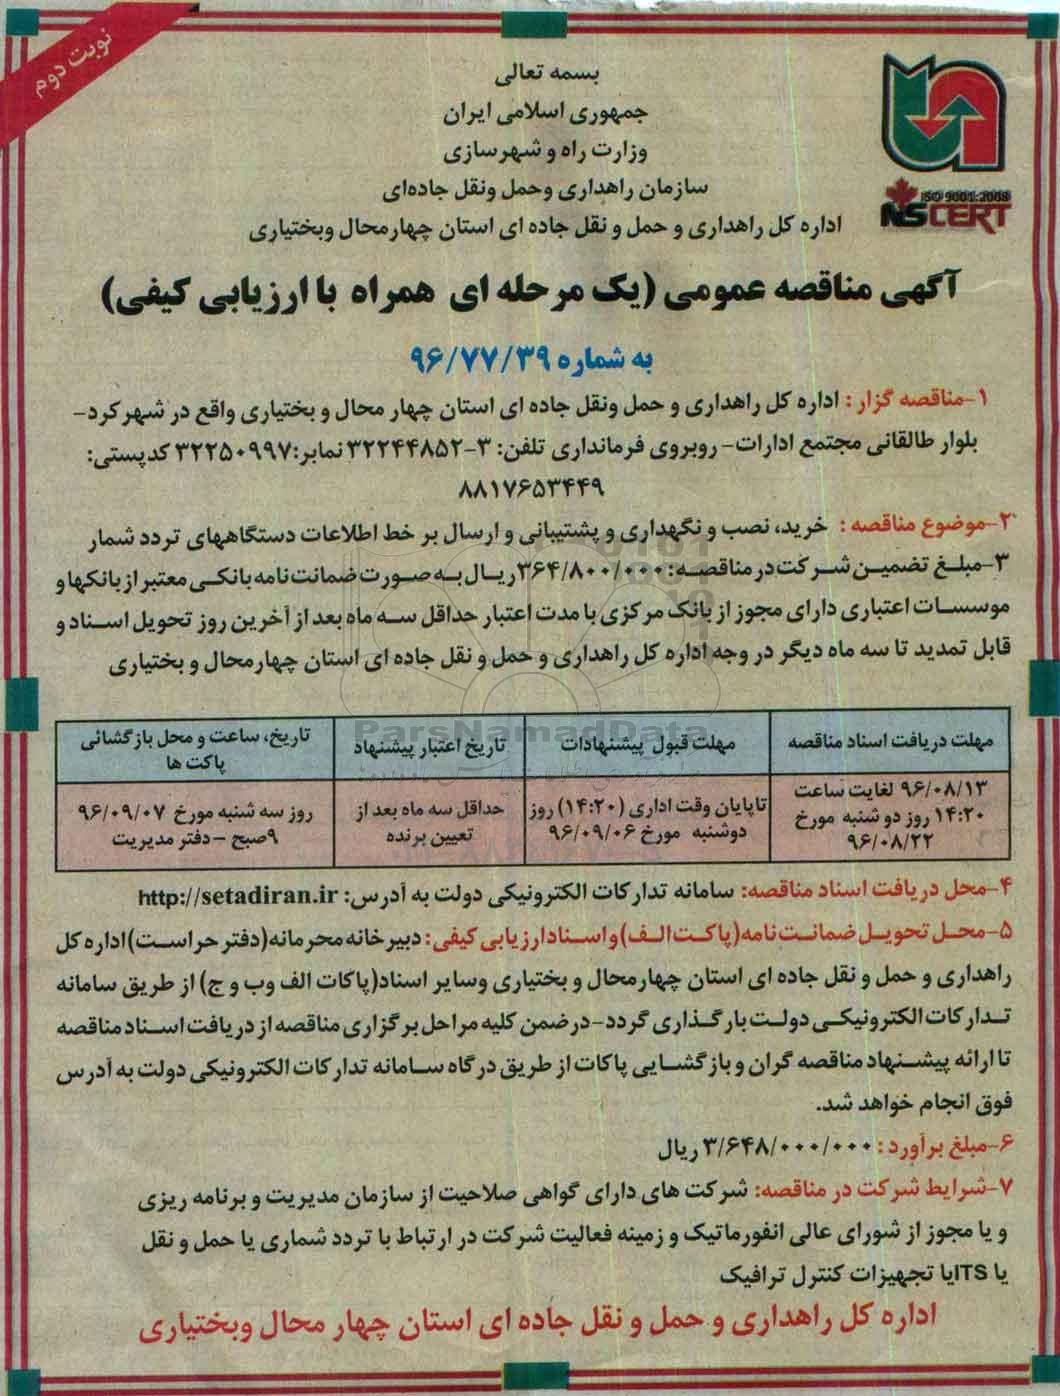 نوبت دوم
بسمه تعالی
جمهوری اسلامی ایران
وزارت راه و شهرسازی
سازمان راهداری وحمل ونقل جاده‌ای
اداره کل راهداری و حمل و نقل جاده ای استان چهارمحال وبختیاری
ISO 9001:2008
NSCERT
آگهی مناقصه عمومی (یک مرحله ای همراه با ارزیابی کیفی)
به شماره ۹۶/۷۷/۳۹
۱-مناقصه گزار : اداره کل راهداری و حمل ونقل جاده ای استان چهار محال و بختیاری واقع در شهرکرد-
بلوار طالقانی مجتمع ادارات- روبروی فرمانداری تلفن: ۳-۳۲۲۴۴۸۵۲ نمابر:۳۲۲۵۰۹۹۷ کدپستی:
۸۸۱۷۶۵۳۴۴۹
۲-موضوع مناقصه : خرید، نصب و نگهداری و پشتیبانی و ارسال بر خط اطلاعات دستگاههای تردد شمار
۳-مبلغ تضمین شرکت در مناقصه: ۳۶۴/۸۰۰/۰۰۰ریال به صورت ضمانت نامه بانکی معتبر از بانکها و
موسسات اعتباری دارای مجوز از بانک مرکزی با مدت اعتبار حداقل سه ماه بعد از آخرین روز تحویل اسناد و
قابل تمدید تا سه ماه دیگر در وجه اداره کل راهداری و حمل و نقل جاده ای استان چهارمحال و بختیاری
ParsNamadData
مهلت دریافت اسناد مناقصه
مهلت قبول پیشنهادات
تاریخ اعتبار پیشنهاد
تاریخ، ساعت و محل بازگشائی
پاکت ها
۹۶/۰۸/۱۳ لغایت ساعت
۱۴:۲۰ روز دو شنبه مورخ
۹۶/۰۸/۲۲
تاپایان وقت اداری (۱۴:۲۰) روز
دوشنبه مورخ ۹۶/۰۹/۰۶
حداقل سه ماه بعد از
تعیین برنده
روز سه شنبه مورخ ۹۶/۰۹/۰۷
۹صبح - دفتر مدیریت
۴-محل دریافت اسناد مناقصه: سامانه تدارکات الکترونیکی دولت به آدرس: http://setadiran.ir
۵-محل تحویل ضمانت نامه(پاکت الف)واسنادارزیابی کیفی: دبیرخانه محرمانه(دفتر حراست)اداره کل
راهداری و حمل و نقل جاده ای استان چهارمحال و بختیاری وسایر اسناد(پاکات الف وب و ج) از طریق سامانه
تدارکات الکترونیکی دولت بارگذاری گردد-درضمن کلیه مراحل برگزاری مناقصه از دریافت اسناد مناقصه
تا ارائه پیشنهاد مناقصه گران و بازگشایی پاکات از طریق درگاه سامانه تدارکات الکترونیکی دولت به آدرس
فوق انجام خواهد شد.
۶-مبلغ برآورد : ۳/۶۴۸/۰۰۰/۰۰۰ ریال
۷-شرایط شرکت در مناقصه: شرکت های دارای گواهی صلاحیت از سازمان مدیریت و برنامه ریزی
و یا مجوز از شورای عالی انفورماتیک و زمینه فعالیت شرکت در ارتباط با تردد شماری یا حمل و نقل
یا ITSیا تجهیزات کنترل ترافیک
اداره کل راهداری و حمل و نقل جاده ای استان چهار محال وبختیاری